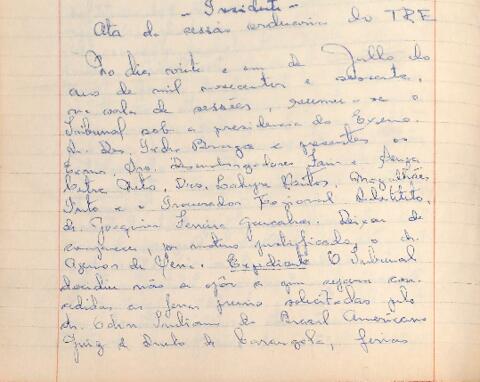 - Presidente -
Ata da sessão ordinaria do TRE
No dia vinte e um de Julho do
ano de mil novecentos e sessenta,
na sala de sessões, reuniu-se o
Tribunal sob a presidencia do Exmo.
Sr. Des. Pedro Braga e presentes os
Exmos. Srs. Desembargadores
Cintra Neto, Drs. Magalhães
Pinto e o Procurador Regional Substituto,
dr. Joaquim Ferreira Gonçalves. Deixou de
comparecer, por motivo justificado, o dr.
Agenor de Sena. Expediente O Tribunal
decidiu não se opôr a que sejam con-
cedidas as ferias premio solicitadas pelo
dr. do Brasil Americano
Juiz de Direito de Carangola, ferias